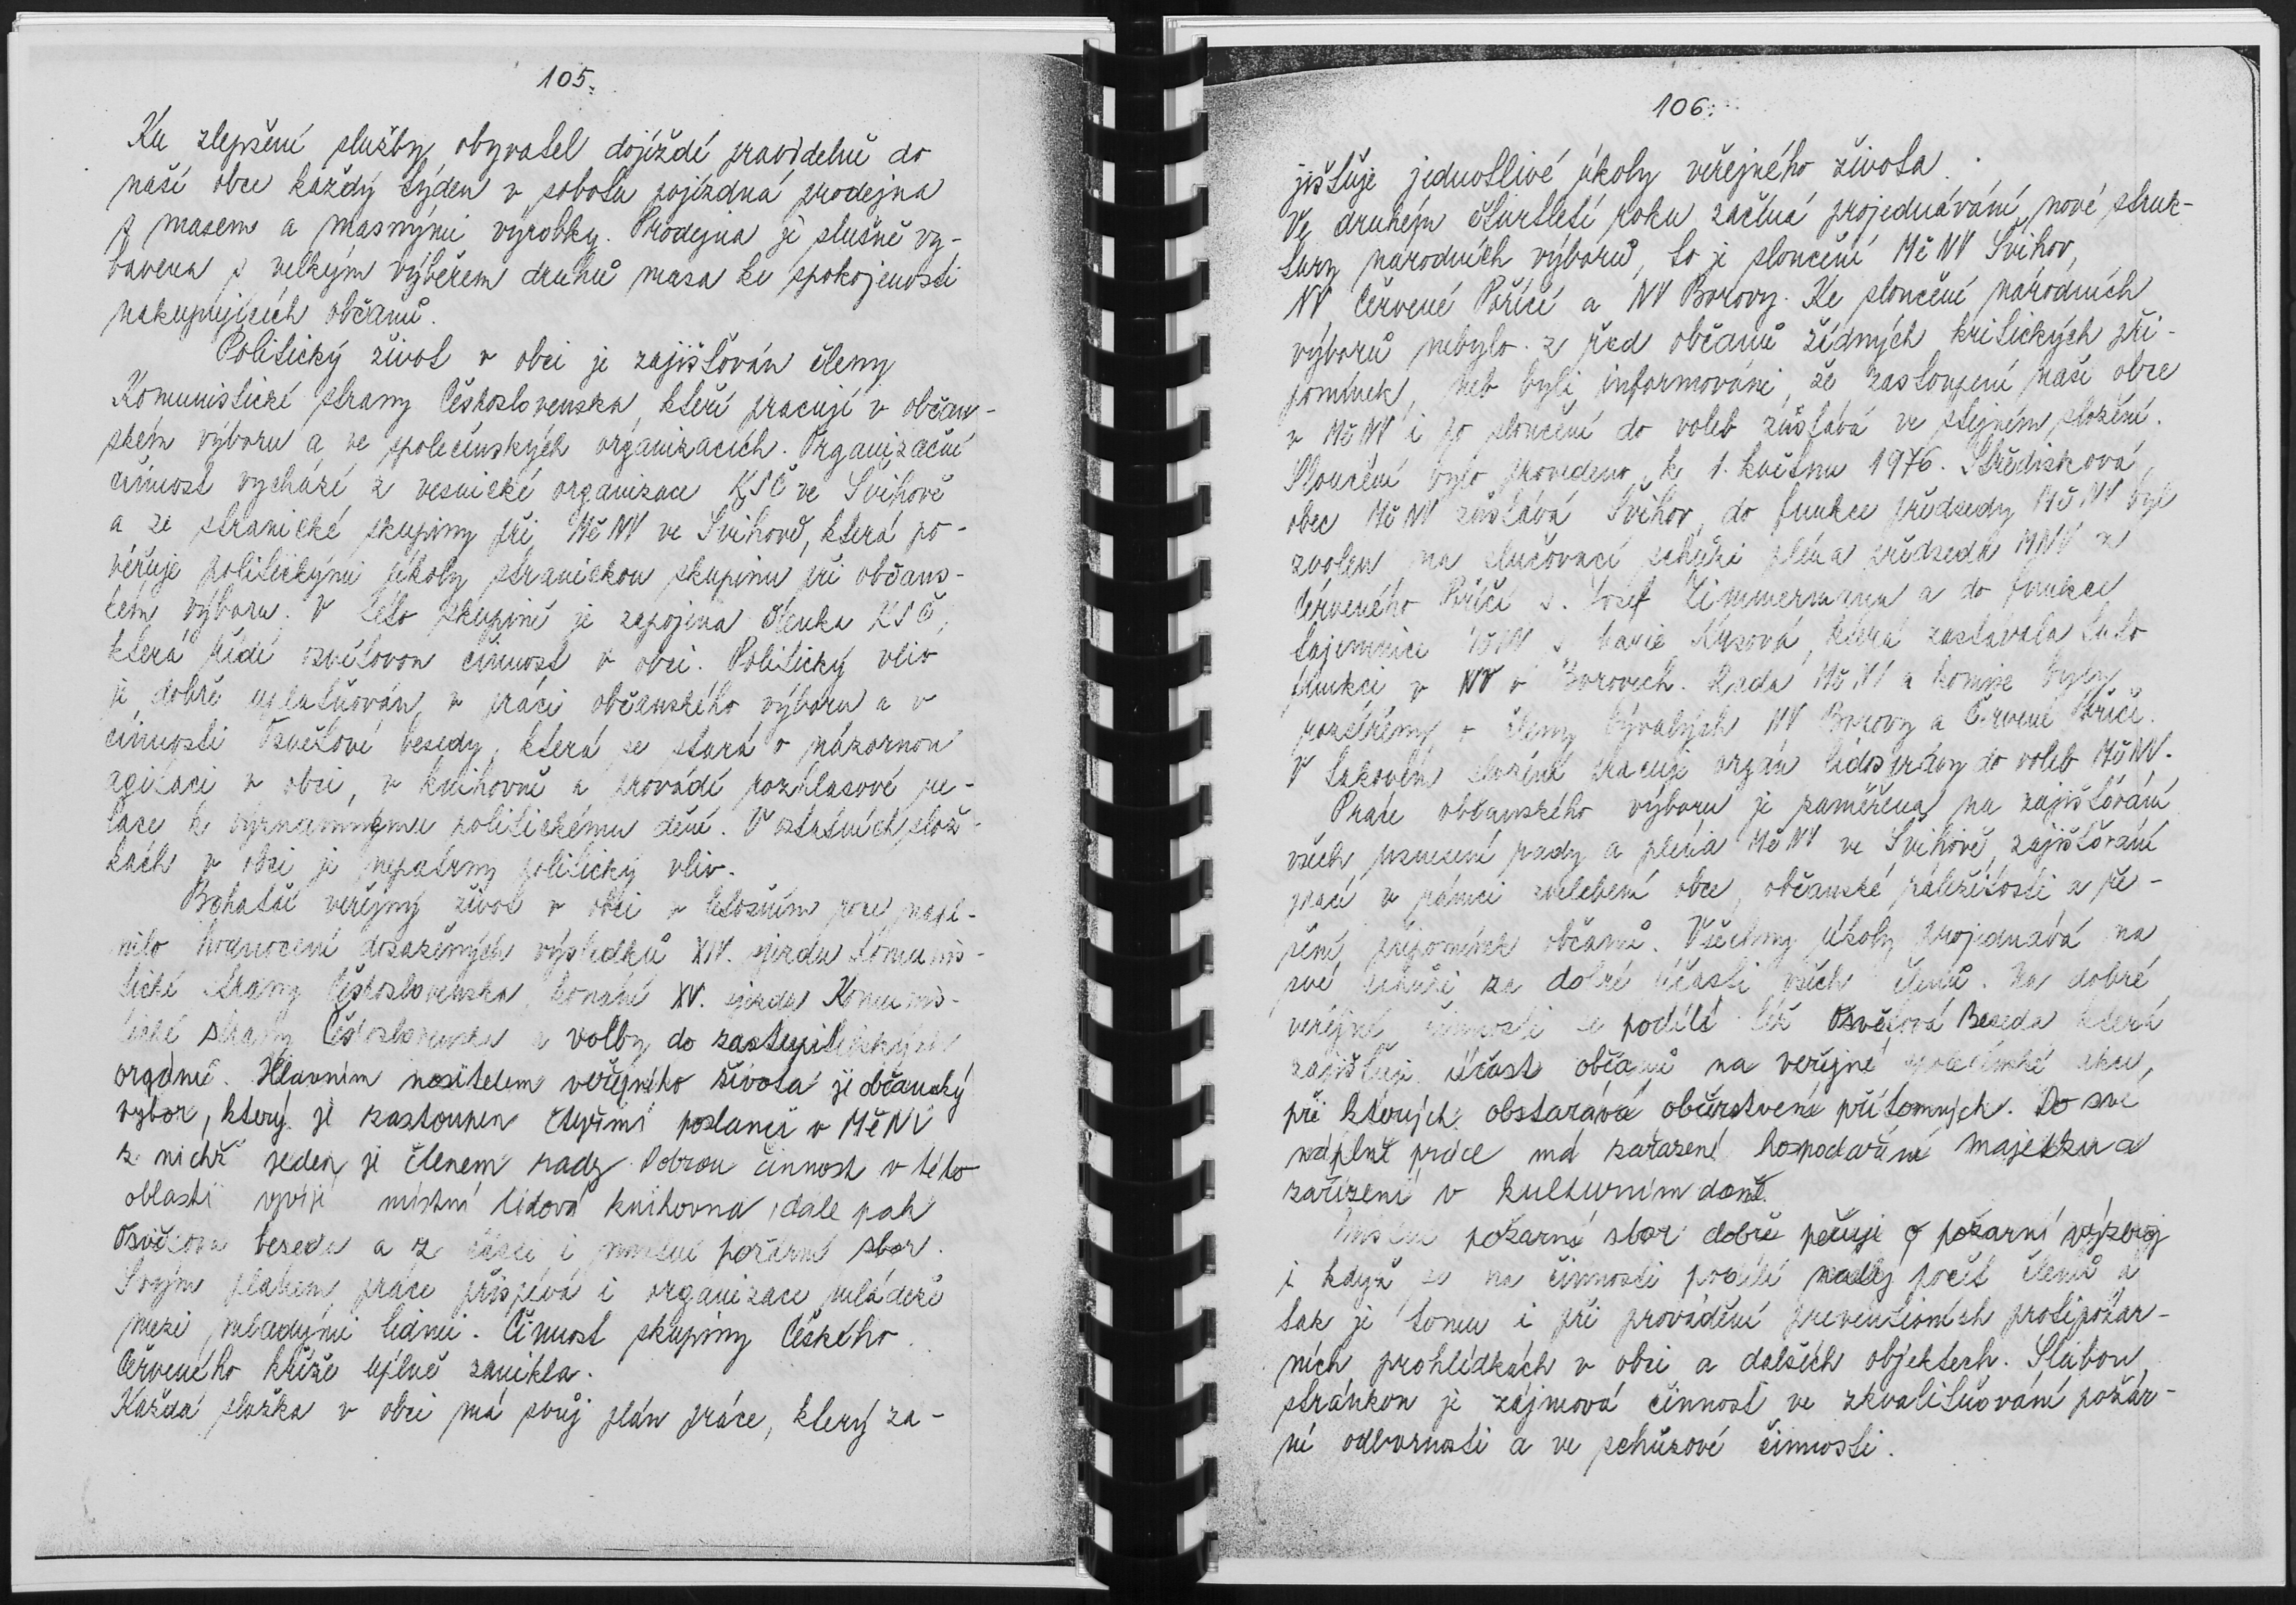 105.
Ku zlepšení služby obyvatel dojíždí pravidelně do
naší obce každý týden v sobotu pojízdná prodejna
s masem a masnými výrobky. Prodejna je slušně vy-
bavena s velkým výběrem druhů masa ke spokojenosti
nakupujících občanů.
Politický život v obci je zajišťován členy
Komunistické strany Československa, kteří pracují v občan-
ském výboru a ve společenských organizacích. Organizační
činnost vychází z vesnické organizace KSČ ve Švihově
a ze stranické skupiny při MěNV ve Švihově, která po-
věřuje politickými úkoly stranickou skupinu při občans-
kém výboru. V této skupině je zapojena členka KSČ,
která řídí osvětovou činnost v obci. Politický vliv
je dobře uplatňován v práci občanského výboru a v
činnosti Osvětové besedy, která se stará o názornou
agitaci v obci, v knihovně a provádí rozhlasové re-
lace k významnému politickému dění. V ostatních slož-
kách v obci je nepatrny politický vliv.
Bohatší veřejný život v obci v letošním roce napl-
nilo hodnocení dosažených výsledků XIV. sjezdu Komunis-
tické strany Československa, konání XV. sjezdu Komunis-
tické strany Československa a volby do zastupitelských
orgánů. Hlavním nositelem veřejného života je občanský
vybor, který je zastoupen čtyřmi poslanci v MěNV
z nichž jeden je členem rady. Dobrou činnost v této
oblasti vyvíjí místní lidová knihovna, dále pak
Osvětova beseda a z části i místní požární sbor.
Svým plánem práce přispívá i organizace mládeže
mezi mladými lidmi. Činnost skupiny Českého
Červeného kříže úplně zanikla.
Každá složka v obci má svůj plán práce, který za-
106.
jišťuje jednotlivé úkoly veřejného života.
Ve druhém čtvrtletí roku začíná projednávání nové struk-
tury národních výborů, to je sloučení MěNV Švihov,
NV Červené Poříčí a NV Borovy. Ke sloučení národních
výborů nebylo z řad občanů žádných kritických při-
pomínek, neb byli informováni, že zastoupení naší obce
v MěNV i po sloučení do voleb zůstává ve stejném složení.
Sloučení bylo provedeno k 1. květnu 1976. Středisková
obec MěNV zůstává Švihov, do funkce předsedy MěNV byl
zvolen na slučovací schůzi pléna předseda MNV z
Červeného Poříčí s. Josef Zimmermann a do funkce
tajemnice MěNV s. Marie Krsová, která zastávala tuto
funkci v NV v Borovech. Rada MěNV a komise byly
rozšířeny o členy bývalých NV Borovy a Červené Poříčí.
V takovém složení pracuje orgán lidosprávy do voleb MěNV.
Práce občanského výboru je zaměřena na zajišťování
všech usnesení rady a pléna MěNV ve Švihově, zajišťování
prací v rámci zvelebení obce, občanské záležitosti a ře-
šení připomínek občanů. Všechny úkoly projednává na
své schůzi za dobré účasti všech členů. Na dobré
veřejné činnosti se podílí též Osvětová Beseda která
zajišťuje účast občanů na veřejné společenské akce,
při kterých obstarává občerstvení přítomných. Do své
náplně práce má zařazení hospodaření majetku a
zařízení v kulturním domě.
Místní požarní sbor dobře pečuje o požarní výzbroj
i když se na činnosti podílí malý počet členů a
tak je tomu i při provádění preventivních protipožár-
ních prohlídkách v obci a dalších objektech. Slabou
stránkou je zájmová činnost ve zkvalitňování požár-
ní odbornosti a ve schůzové činnosti.